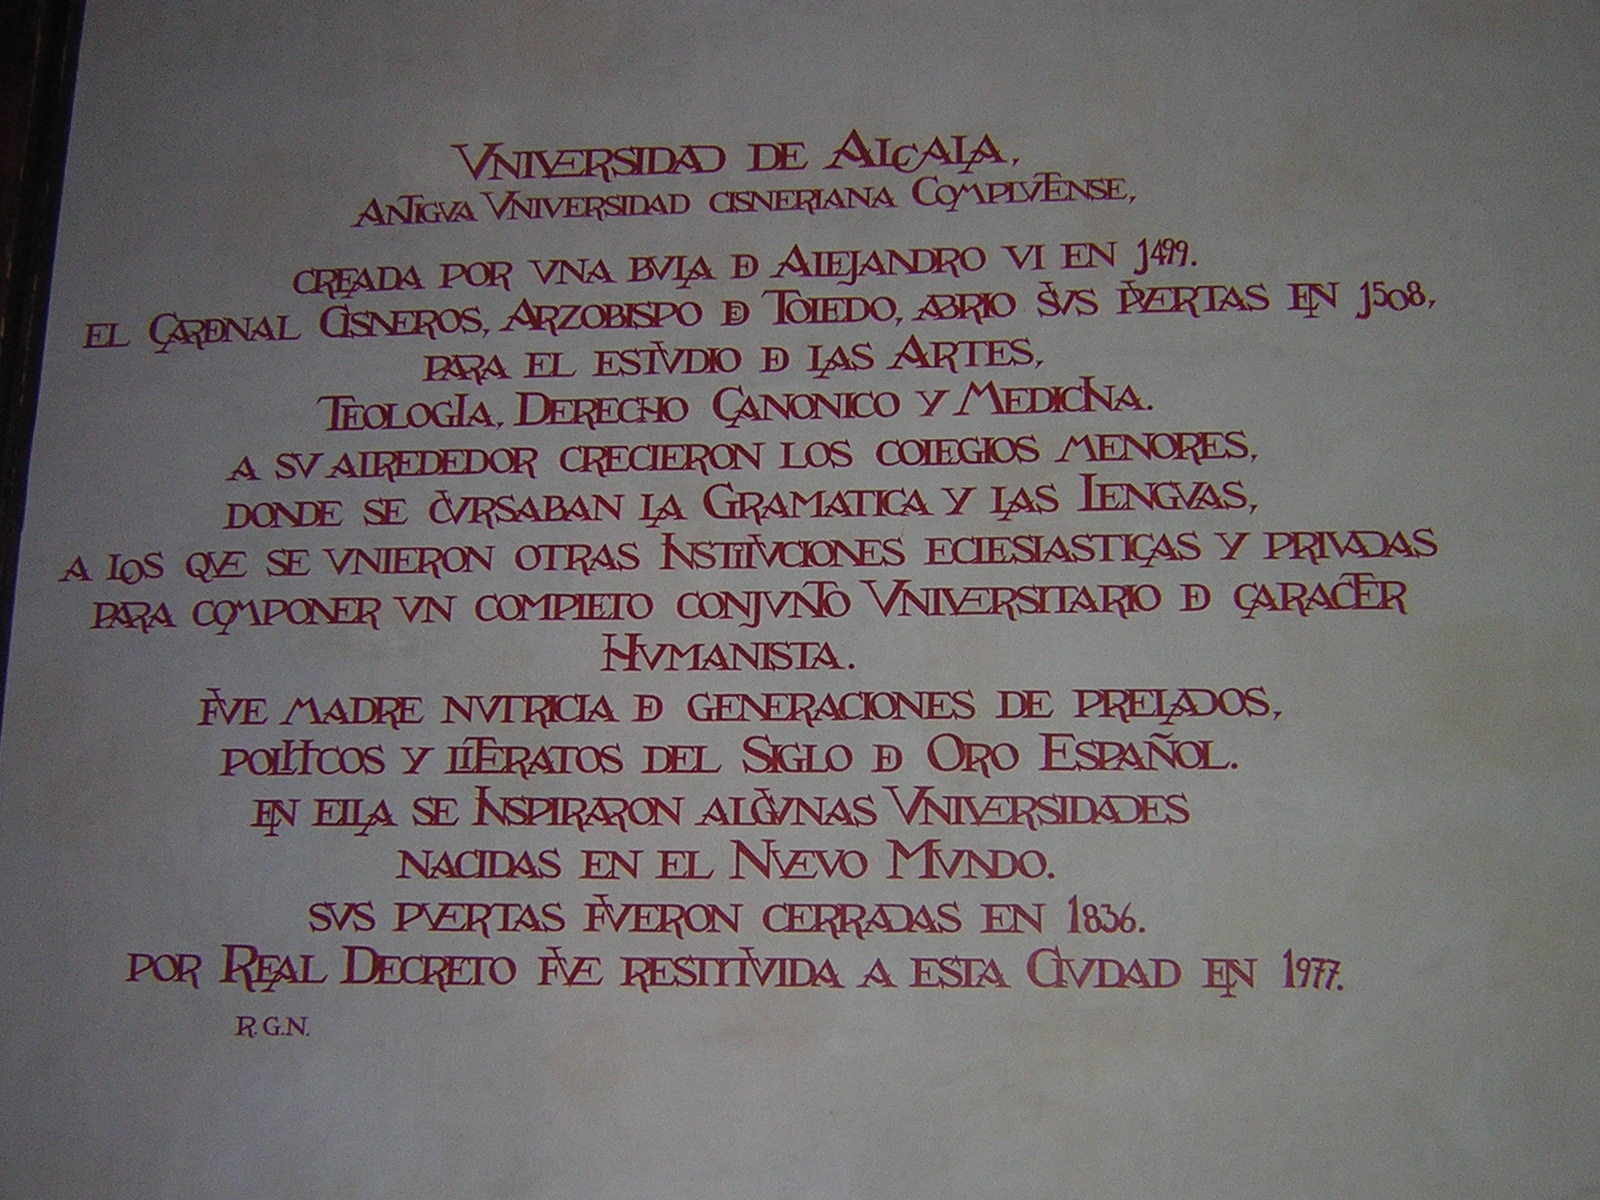 VNIVERSIDAD DE ALCALA,
ANTIGVA VNIVERSIDAD CISNERIANA COMPLVTENSE,
CREADA POR VNA BVLA DE ALEJANDRO VI EN 1499.
EL CARDENAL CISNEROS, ARZOBISPO DE TOLEDO, ABRIO SVS PVERTAS EN 1508,
PARA EL ESTVDIO DE LAS ARTES,
TEOLOGIA, DERECHO CANONICO Y MEDICINA.
A SV ALREDEDOR CRECIERON LOS COLEGIOS MENORES,
DONDE SE CVRSABAN LA GRAMATICA Y LAS LENGVAS,
A LOS QVE SE VNIERON OTRAS INSTITVCIONES ECLESIASTICAS Y PRIVADAS
PARA COMPONER VN COMPLETO CONJVNTO VNIVERSITARIO DE CARACTER
HVMANISTA.
FVE MADRE NVTRICIA DE GENERACIONES DE PRELADOS,
POLITICOS Y LITERATOS DEL SIGLO DE ORO ESPAÑOL.
EN ELLA SE INSPIRARON ALGVNAS VNIVERSIDADES
NACIDAS EN EL NVEVO MVNDO.
SVS PVERTAS FVERON CERRADAS EN 1836.
POR REAL DECRETO FVE RESTITVIDA A ESTA CIVDAD EN 1977.
R.G.N.